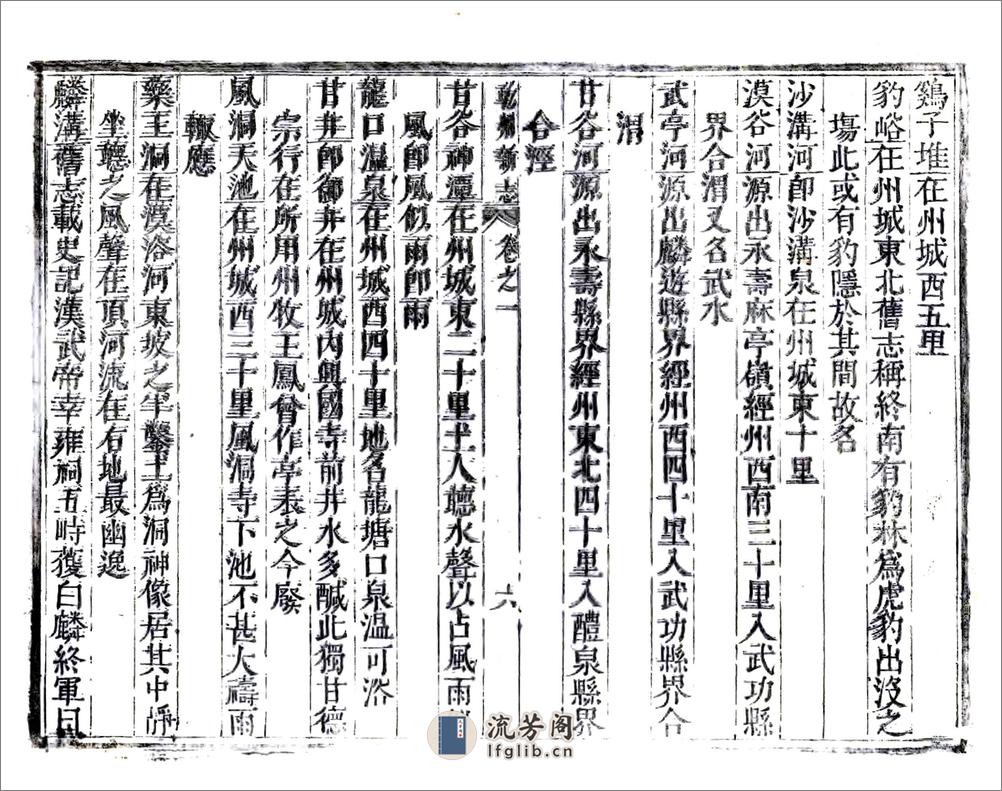 鷄子堆在州城西五里
豹峪在州城東北舊志稱終南有豹林爲虎豹出没之
塲此或有豹隱於其間故名
沙溝河卽沙溝泉在州城東十里
漠谷河源出永壽麻亭嶺經州西南三十里入武功縣
界合渭又名武水
武亭河源出麟遊縣界經州西四十里入武功縣界合
渭
甘谷河源出永壽縣界經州東北四十里入醴泉縣界
合涇
乾州新志 卷之一 六
甘谷神潭在州城東二十里土人聽水聲以占風雨
風卽風似雨卽雨
龍口温泉在州城西四十里地名龍塘口泉温可浴
甘井卽御井在州城内興國寺前井水多鹹此獨甘德
宗行在所用州牧王鳳曾作亭表之今廢
風洞天池在州城西三十里風洞寺下池不甚大禱雨
輙應
藥王洞在漠浴河東坡之半鑿土爲洞神像居其中靜
坐聽之風聲在頂河流在右地最幽逸
麟溝舊志載史記漢武帝幸雍祠五畤獲白麟終軍曰
流芳阁
lfglib.cn